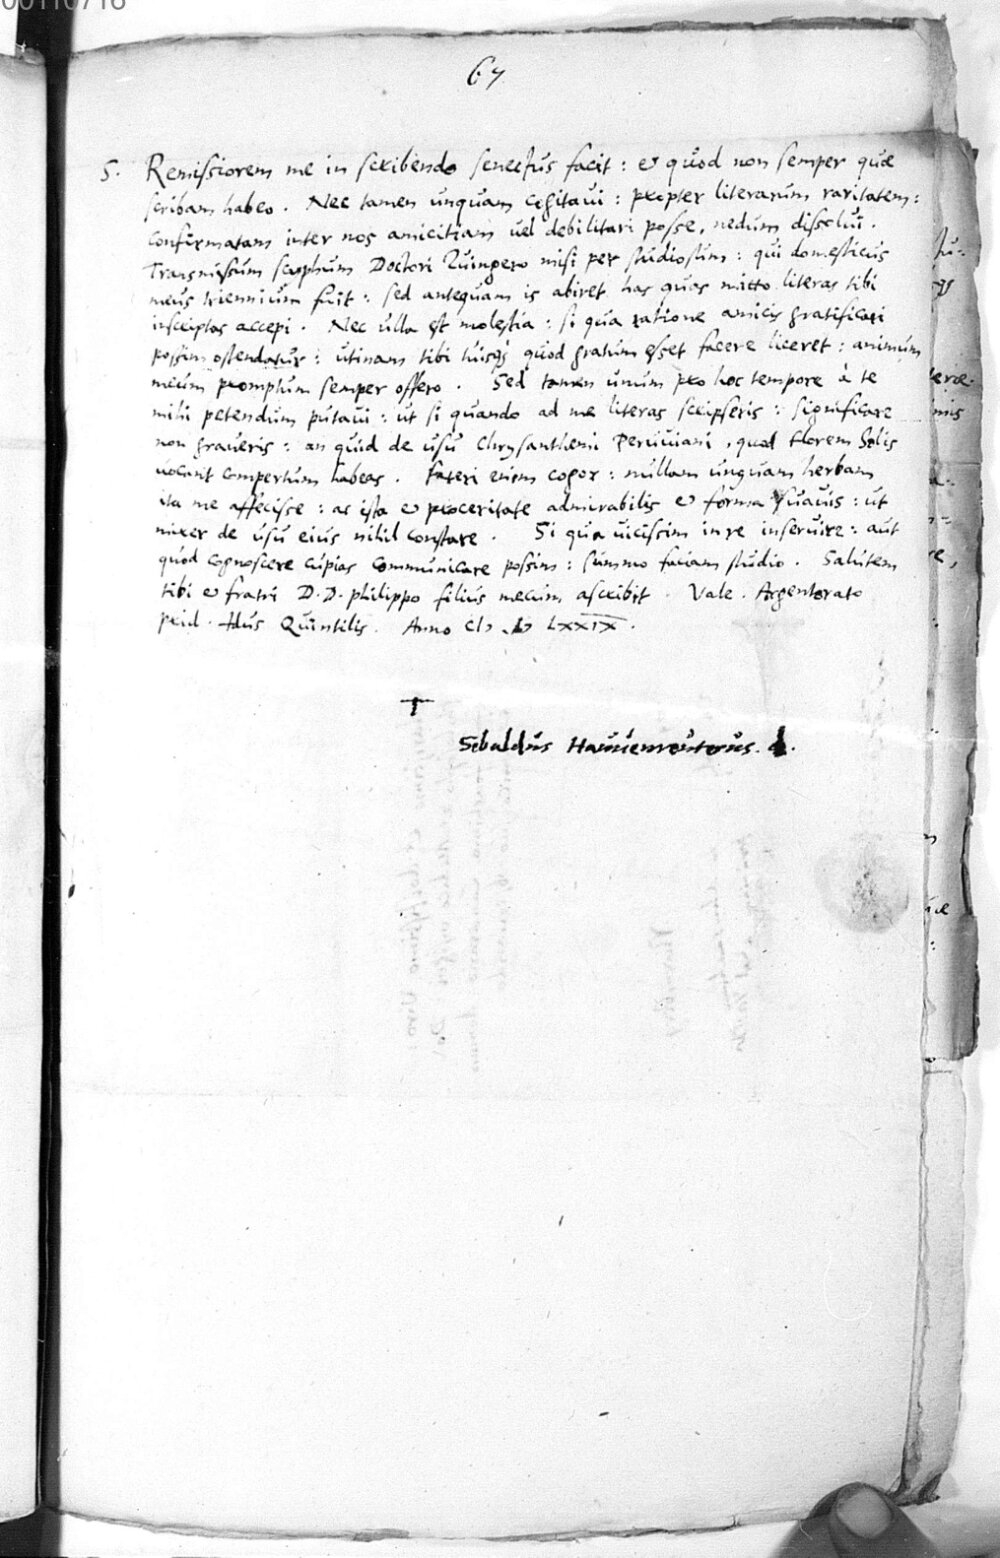 00110716
67
S. Remissiorem me in scribendo senectus facit : et quod non semper quæ
scribam habeo . Nec tamen unquam cogitaui : propter literarum raritatem :
confirmatam inter nos amicitiam uel debilitari posse , nedum dissolui .
Transmissum scyphum Doctori Zuingero misi per studiosum : qui domesticus
meus triennium fuit : sed antequam is abiret has quas mitto literas tibi
inscriptas accepi . Nec ulla est molestia : si qua ratione amicis gratificari
possim ostendatur : utinam tibi tuisq; quod gratum esset facere liceret : animum
meum promptum semper offero . Sed tamen unum pro hoc tempore à te
mihi petendum putaui : ut si quando ad me literas scripseris : significare
non graueris : an quid de usu Chrysanthemi Peruuiani , quod florem Solis
uocant compertum habeas . Fateri enim cogor : nullam unquam herbam
ita me affecisse : ac ista et proceritate admirabilis et forma suauis : ut
mirer de usu eius nihil constare . Si qua uicissim in re inseruire : aut
quod cognoscere cupias communicare possim : summo faciam studio . Salutem
tibi et fratri D. D. Philippo filius mecum ascribit . Vale . Argentorato
prid . Idus Quintilis . Anno CIↃ . IↃ LXXIX .
Sebaldus Hauuenreuterus . d .